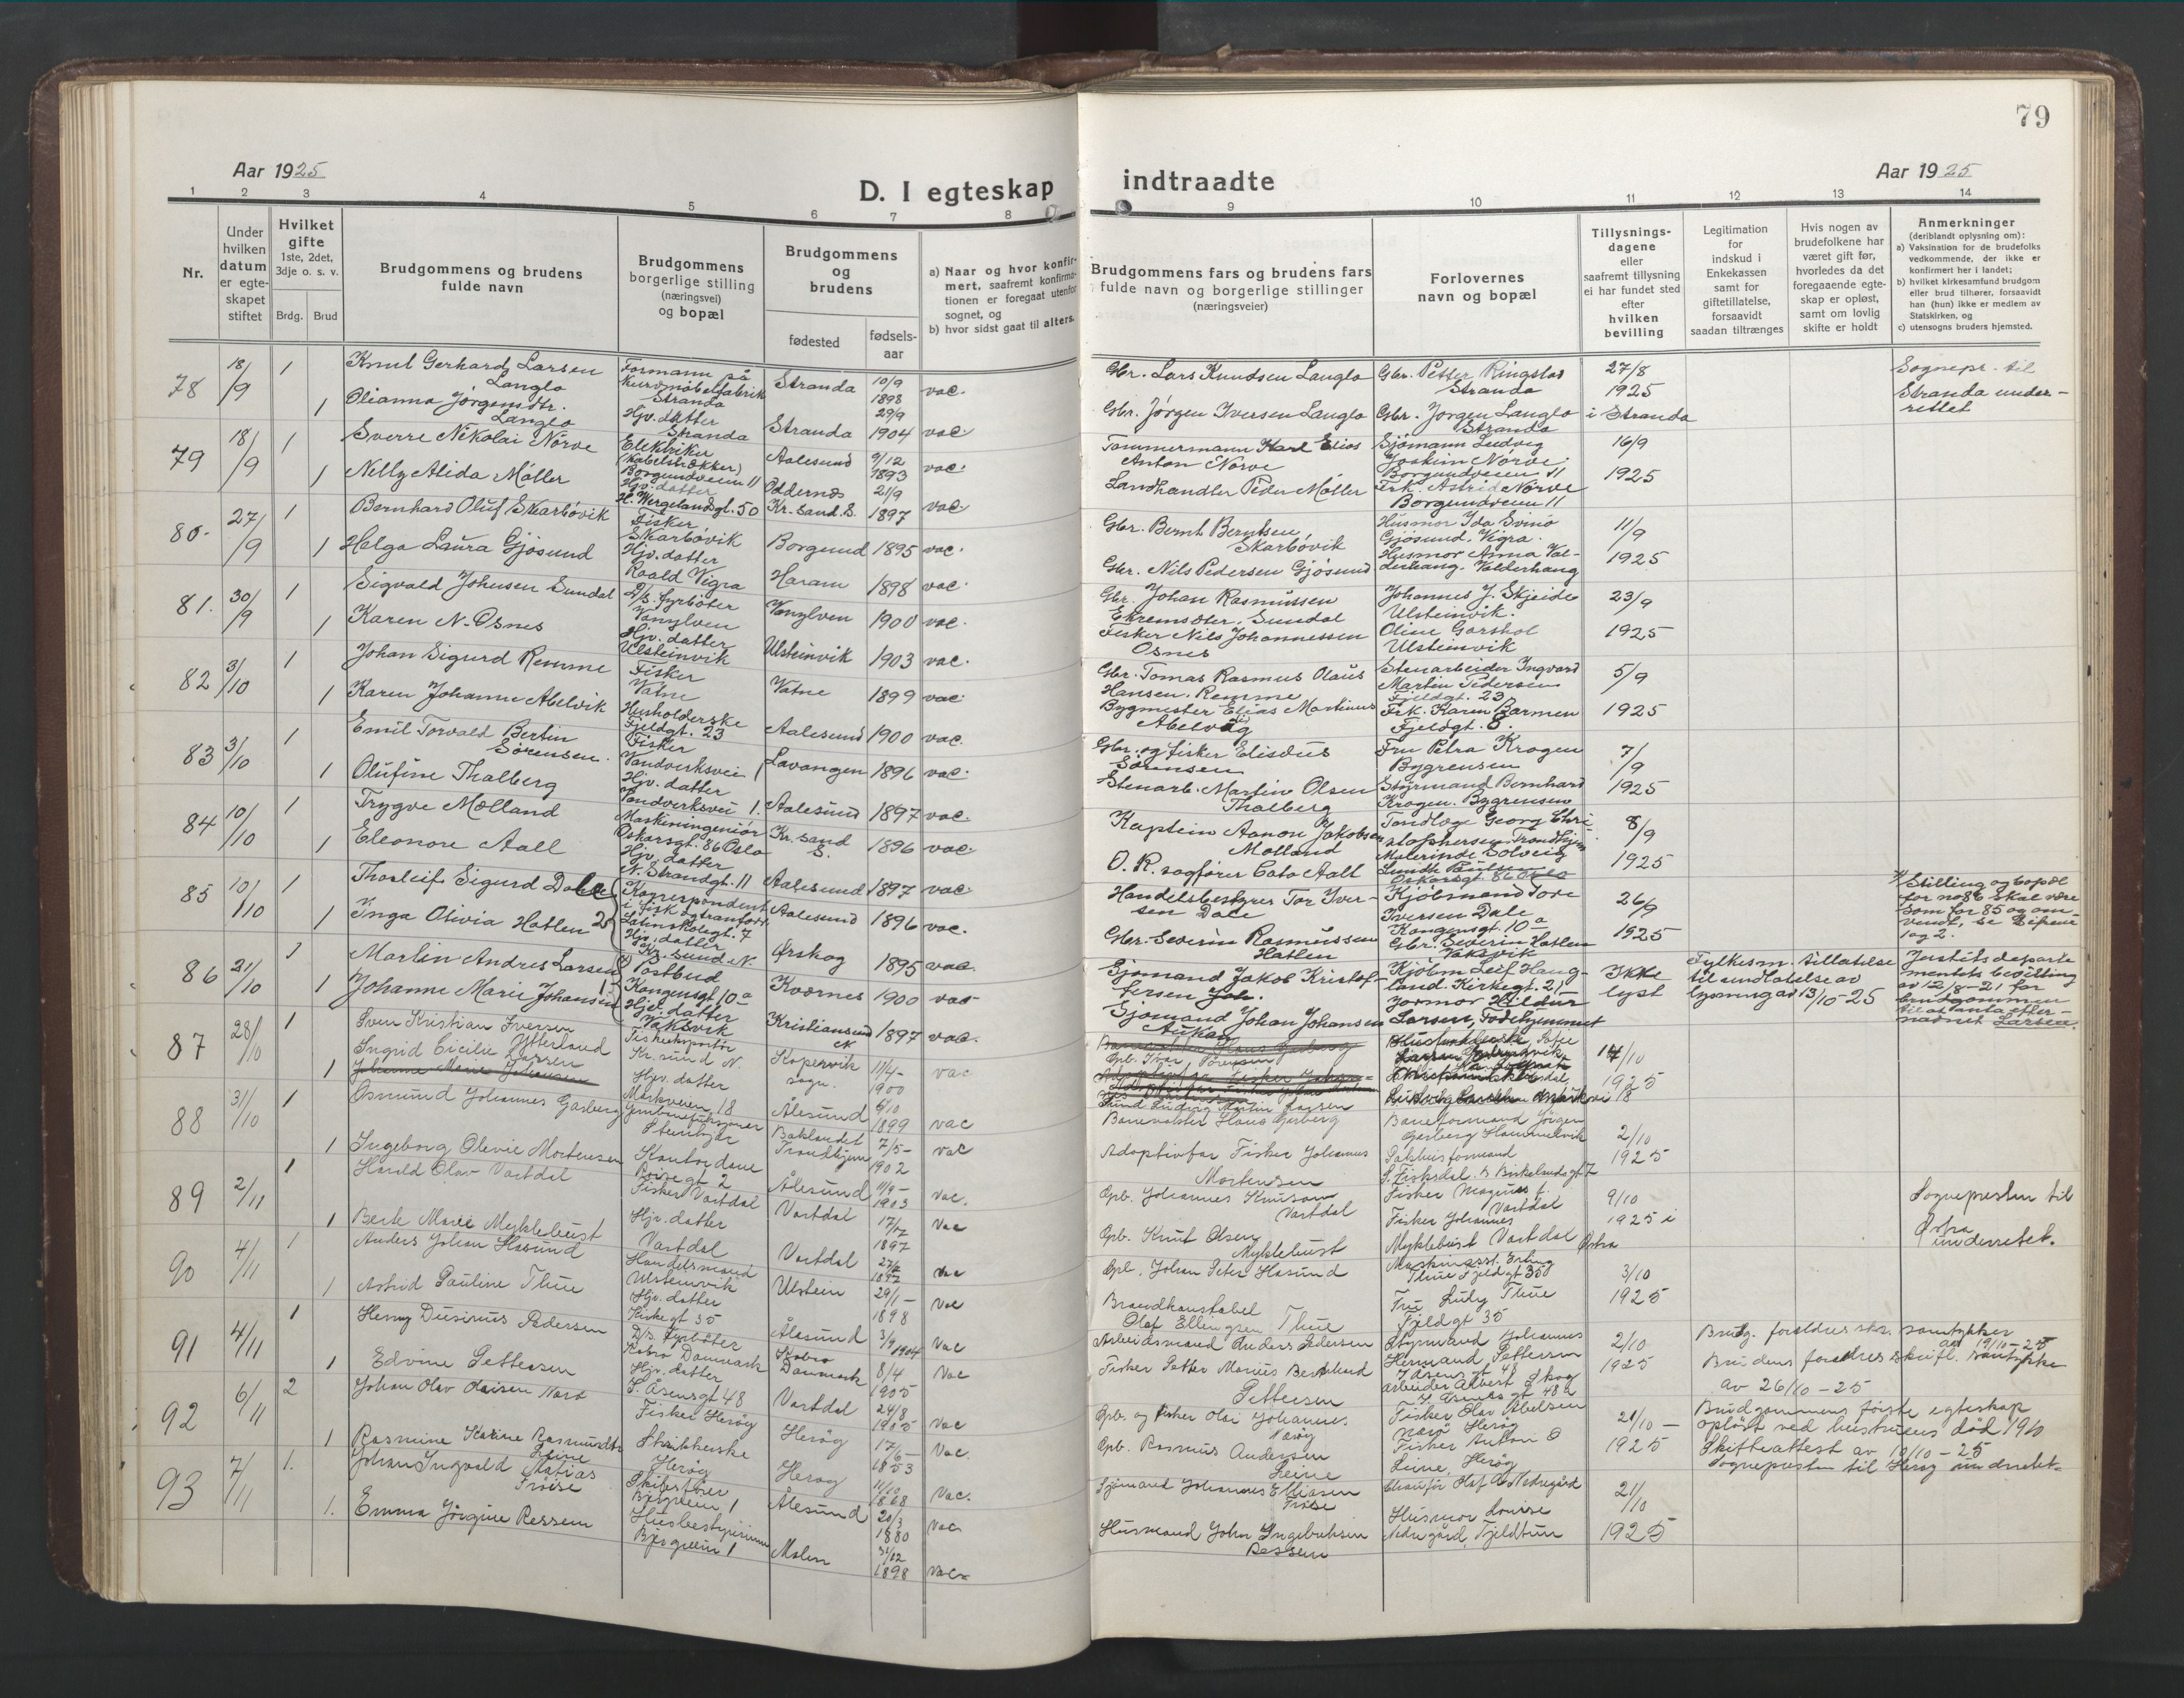 79
Aar 1925
D. I egteskap
indtraadte
Aar 1925
1 2 3 4 5 6 7 8 9 10 11 12 13 14
Nr.
Under hvilken datum er egte-skapet stiftet
Hvilket gifte
1ste, 2det, 3dje o. s. v.
Brdg. Brud
Brudgommens og brudens fulde navn
Brudgommens borgerlige stilling (næringsvei) og bopæl
Brudgommens og brudens
fødested
fødsels-aar
a) Naar og hvor konfir-mert, saafremt konfirma-tionen er foregaat utenfor sognet, og
b) hvor sidst gaat til alters.
Brudgommens fars og brudens fars fulde navn og borgerlige stillinger (næringsveier)
Forlovernes navn og bopæl
Tillysnings-dagene eller saafremt tillysning ei har fundet sted efter hvilken bevilling
Legitimation for indskud i Enkekassen samt for giftetillatelse, forsaavidt saadan tiltrænges
Hvis nogen av brudefolkene har været gift før, hvorledes da det foregaaende egte-skap er opløst, samt om lovlig skifte er holdt
Anmerkninger
(deriblandt oplysning om):
a) Vaksination for de brudefolks vedkommende, der ikke er konfirmert her i landet;
b) hvilket kirkesamfund brudgom eller brud tilhører, forsaavidt han (hun) ikke er medlem av Statskirken, og
c) utensogns bruders hjemsted.
78 18/9 1 Knut Gerhard Larsen Langlo
Formann på Kurvmøbelfabrik Stranda
Stranda 10/9 1898 vac.
Gbr. Lars Knudsen Langlo
Gbr. Petter Ringstad Stranda
27/8 1925 i Stranda
Sognepr. til Stranda under-rettet
1 Olianna Jørgensdtr. Langlo
Hjv. datter Stranda
Stranda 29/9 1904 vac
Gbr. Jørgen Iversen Langlo
Gbr. Jørgen Langlo Stranda
79 18/9 1 Sverre Nikolai Nørve
Elektriker (Kabelstrækker) Borgundveien 11
Aalesund 9/12 1893 vac.
Tømmermann Karl Elias Anton Nørve
Sjømann Ludvig Joakim Nørve Borgundveien 11
16/9 1925
1 Nelly Alida Møller
Hjv. datter H. Wergelandsgt. 50
Oddernes Kr.sand.S. 21/9 1897 vac
Landhandler Peder Møller
Frk. Astrid Nørve Borgundveien 11
80. 27/9 1 Bernhard Oluf Skarbøvik
Fisker Skarbøvik
Borgund 1895 vac.
Gbr. Bernt Berntsen, Skarbøvik
Husmor Ida Svinø Gjøsund, Vigra.
11/9 1925
1 Helga Laura Gjøsund
Hjv. datter Roald Vigra
Haram 1898 vac.
Gbr. Nils Pedersen Gjøsund
Husmor Anna Val-derhaug. Valderhaug
81. 30/9 1 Sigvald Johnsen Sundal
D/s. fyrbøter Vanylven
Vanylven 1900 vac.
Gbr. Johan Rasmussen Ekremsæter, Sundal
Johannes J. Skjeide Ulsteinvik.
23/9 1925
1 Karen N. Osnes
Hjv. datter Ulsteinvik
Ulsteinvik 1903 vac.
Fisker Nils Johannessen Osnes
Oline Garshol Ulsteinvik
82 3/10 1 Johan Sigurd Remme
Fisker Vatne
Vatne 1899 vac.
Gbr. Tomas Rasmus Olaus Hansen. Remme
Stenarbeider Ingvard Martin Pedersen Fjeldgt. 23
5/9 1925
1 Karen Johanne Abelvik
Husholderske Fjeldgt. 23
Aalesund 1900 vac.
Bygmester Elias Martinus Abelvåg
Frk. Karen Barmen Fjeldgt. 8.
83 3/10 1 Emil Torvald Bertin Sørensen.
Fisker Vandverksvei 1
Lavangen 1896 vac.
Gbr. og fisker Elisæus Sørensen
Fru Petra Krogen Bygrensen
7/9 1925
1 Olufine Thalberg
Hjv. datter Vandverksvei 1.
Aalesund 1897 vac.
Stenarb. Martin Olsen Thalberg
Styrmand Bernhard Krogen. Bygrensen
84 10/10 1 Trygve Mølland
Maskiningeniør Oskarsgt. 86 Oslo
Kr. sand S. 1896 vac.
Kaptein Aanon Jakobsen Mølland
Tandlæge Georg Chri-stophersen Trondhjem
8/9 1925
1 Eleonore Aall
Hjv. datter N. Strandgt. 11
Aalesund 1897 vac.
O. R. sagfører Cato Aall
Malerinde Solveig Oskarsgt. 86 Oslo
85 10/10 1 Thorleif Sigurd Dale
Korrespondent i fisk Latinskolegt. 7
Aalesund 1896 vac.
Handelsbestyrer Tor Iver-sen Dale
Kjøbmand Tore Iversen Dale Kongensgt. 10a
26/9 1925
x) Stilling og bopæl for no 86 skal være som for 85 og om-vendt, se Sifrene 1 og 2.
1 Inga Olivia Hatlen 2
Hjv. datter Kr. sund N.
Ørskog 1895 vac.
Gbr. Severin Rasmussen Hatlen
Gbr. Severin Hatlen Vaksvik
86 21/10 1 Martin Andres Larsen
Postbud Kongensgt. 10a
Kvernes 1900 vac
Sjømand Jakob Kristof-fersen
Kjøbm Leif Haug-land. Kirkegt. 21
Ikke lyst
Fylkesm. tillatelse til undlatelse av lysning av 13/10-25
Justitsdeparte mentets bevilling av 12/8-21 for brudgommen til at anta efter-navnet Larsen.
1 Johanne Marie Johansen 1
Hjv. datter Vaksvik
Kristiansund N 1897 vac.
Sjømand Johan Johansen Aukan
Jormor Hildur Larsen, Fødehjemmet
87 28/10 1 Sven Kristian Iversen Ytterland
Fiskeeksportør Kr. sund N.
Kopervik sogn. 11/4- 1900 vac
Gpb. Ivar Iversen
14/10 1925
1 Ingrid Cicilie Larsen
Johanne Marie Johansen
Hjv. datter Markveien 18
Ålesund 6/10 1899 vac
Ludvig Martin Larsen
88 31/10 1 Osmund Johannes Garberg
Steinkjær
Baklandet Trondhjem 7/5- 1902 vac
Banevokter Hans Garberg
Baneformand Jörgen Garberg Hommelvik
2/10 1925
1 Ingeborg Olevie Mortensen
Kontordame gt 2
Ålesund 11/9- 1903 vac.
Adoptivfar Fisker Johannes Mortensen
S. Fiskerdal.
89 2/11 1 Harald Olav Vartdal
Fisker Vartdal
Vartdal 17/12 1897 Vac
Gpb. Johannes Knutson Vartdal
Fisker Magnus J. Vartdal
9/10 1925 i Østra
Sognepresten til Østra underrettet.
1 Berte Marie Myklebust
Hjv. datter Vartdal
Vartdal 1897 Vac
Gpb. Knut Olsen Myklebust
Fisker Johannes Myklebust Vartdal
90 4/11 1 Anders Johan Hasund
Handelsmand Ulsteinvik
Ulstein 29/1- 1898 Vac
Gpb. Johan Peter Hasund
Maskinasst. Erling Thue Fjeldgt 35
3/10 1925
1 Astrid Pauline Thue
Hjv. datter Kirkegt 35
Ålesund 3/9 1904 Vac
Brandkonstabel Olaf Ellingsen Thue
Fru Luly Thue Fjeldgt 35
91 4/11 1 Henry Dusinus Pedersen
D/s. Fyrbøter Kobro Danmark
Kobro Danmark 8/4 1905 Vac
Arbeidsmand Anders Pedersen
Styrmand Johannes Hermand Pettersen
2/10 1925
Brudg. foreldres skr. samtykke av 19/10-25
Brudens foreldres skriftl. samtykke av 26/10-25
1 Edvine Pettersen
Hjv. datter S. Åsensgt 48
Vartdal 24/8 1905 Vac
Fisker Petter Marius Bernhard Pettersen
arbeider Albert Skog
92 6/11 2 Johan Olav Olaisen Nærø
Fisker Herøy
Herøy 17/6- 1853 Vac.
Gpb. og fisker Olai Johannes Nærøy
Fisker Olav Abelsen Nærø Herøy
21/10- 1925
Brudgommens første egteskap opløst ved hustruens død 1910
Skifteattest av 10/10-25
Sognepresten til Herøy underrettet.
1 Rasmine Karine Rasmusdtr Leine
Strikkerske Herøy
Herøy 11/10 1868 Vac.
Gpb. Rasmus Andersen Leine
Fisker Anton O Leine, Herøy
93 7/11 1. Johan Ingvald Matias Frøise
Skibsfører Bjergveien 1
Ålesund 20/3 1880 Vac
Sjømand Johannes Eliasen Frøise
Chauffør Olaf A. Nedregård
21/10 1925
1. Emma Jörgine Ressem
Husbestyrerinne Bjergveien 1
Molen 31/12 1898 Vac.
Husmand John Ingebriktsen Ressem
Husmor Louise Nedregård, Fjeldtun